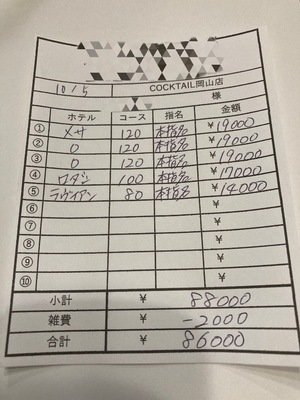 COCKTAIL岡山店
10/5
様
ホテル コース 指名 金額
① メサ 120 本指名 ¥19000
② 〃 120 本指名 ¥19000
③ 〃 120 本指名 ¥19000
④ ワダシ 100 本指名 ¥17000
⑤ ラヴィアン 80 本指名 ¥14000
⑥
⑦
⑧
⑨
⑩
小計 ¥ 88000
雑費 ¥ -2000
合計 ¥ 86000